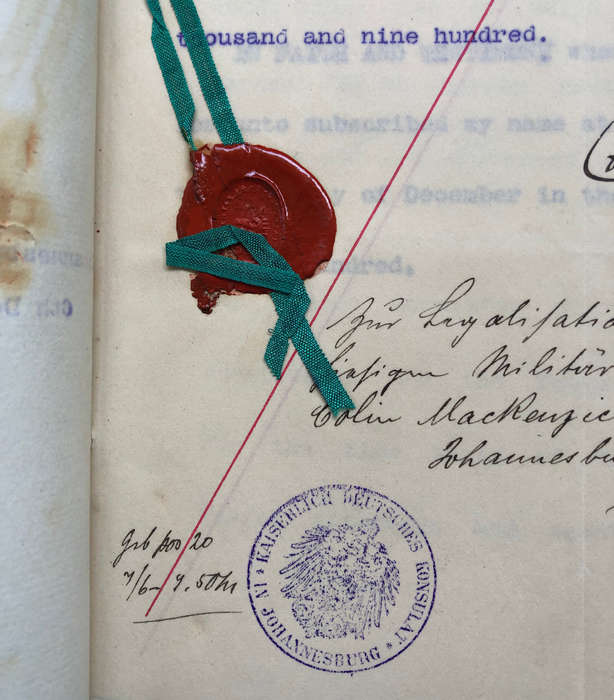 thousand and nine hundred.
subscribed my name at
of December in th
ndred.
Zur Legalisatio
hiesigen Militär
Colin Mackenzie
Johannesbu
KAISERLICH DEUTSCHES KONSULAT
IN JOHANNESBURG